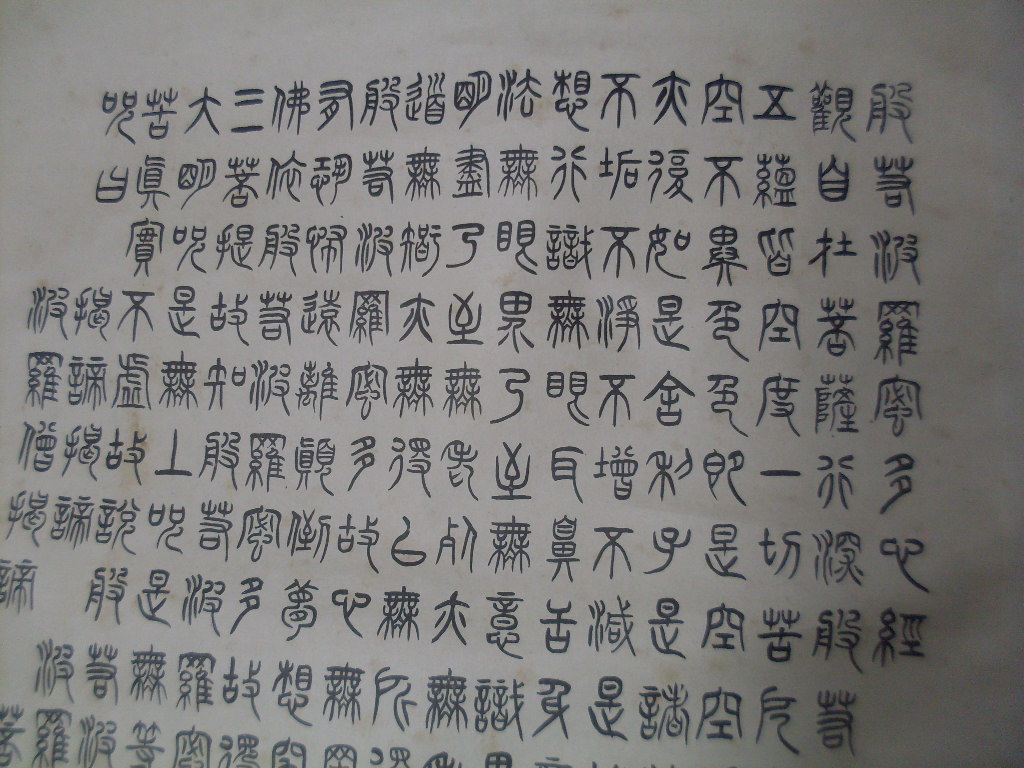 般若波羅蜜多心經
觀自在菩薩行深般若
五蘊皆空度一切苦厄
空不異色色即是空空
亦復如是舍利子是諸
不垢不淨不增不減是
想行識無眼耳鼻舌身
法無眼界乃至無意識界
明盡乃至無老死亦無
道無智亦無得以無所得
般若波羅蜜多故心無罣
有恐怖遠離顛倒夢想究
佛依般若波羅蜜多故得
三菩提故知般若波羅蜜
大明咒是無上咒是無等
苦真實不虛故說般若波
咒曰 揭諦揭諦 波羅
波羅僧揭諦 菩